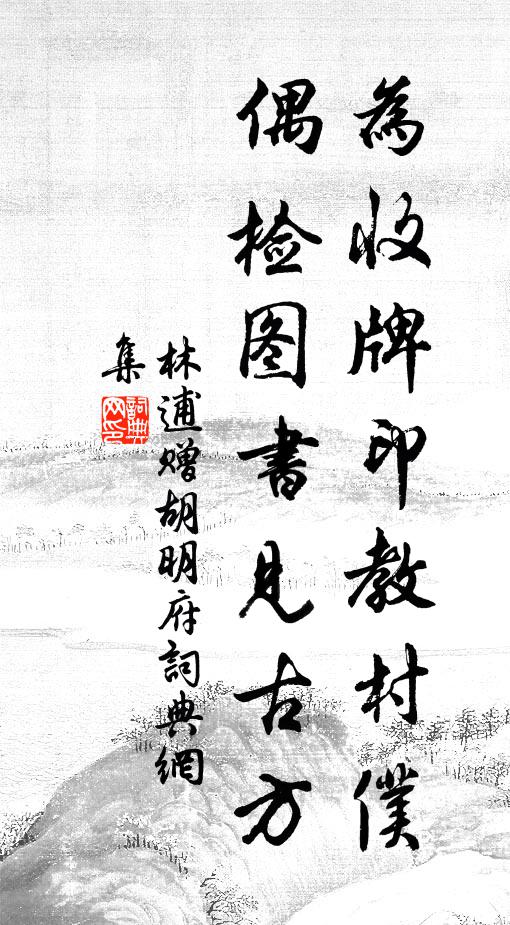 為收牌印教村僕
偶检图書見古方
林逋贈胡明府詞典網
集
詞典網印